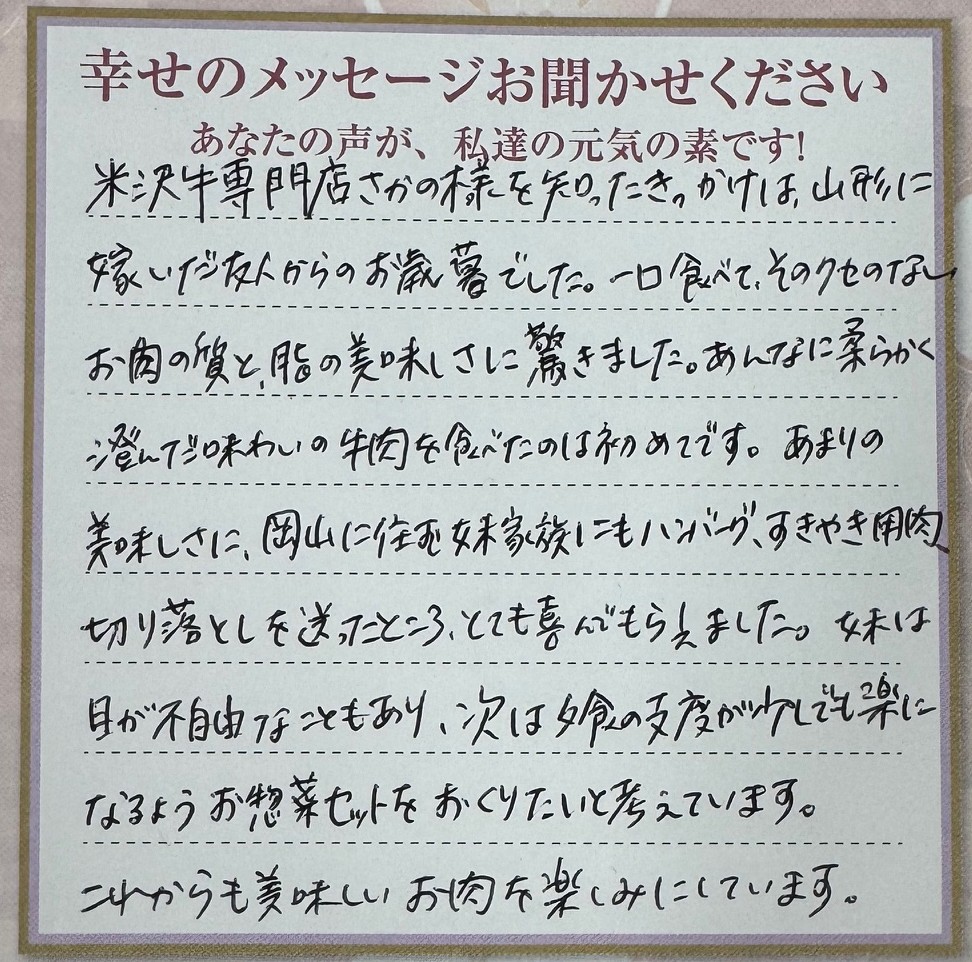 幸せのメッセージお聞かせください
あなたの声が、私達の元気の素です!
米沢牛専門店さかの様を知ったきっかけは、山形に
嫁いだ友人からのお歳暮でした。一口食べて、そのクセのなし
お肉の質と、脂の美味しさに驚きました。あんなに柔らかく
澄んだ味わいの牛肉を食べたのは初めてです。あまりの
美味しさに、岡山に住む妹家族にもハンバーグ、すきやき用肉、
切り落としを送ったところ、とても喜んでもらえました。妹は
目が不自由なこともあり、次は夕食の支度が少しでも楽に
なるようお惣菜セットをおくりたいと考えています。
これからも美味しいお肉を楽しみにしています。